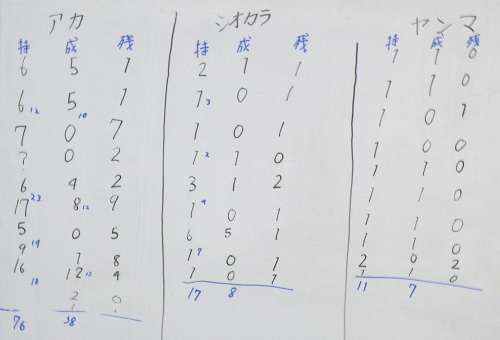 アカ シオカラ ヤンマ
持 成 残 持 成 残 持 成 残
6 5 1 2 1 1 1 1 0
6 12 5 10 1 1 3 0 1 1 1 0
7 0 7 1 0 1 1 0 1
? 0 2 1 2 1 0 1 0 0
6 4 2 3 1 2 1 1 0
17 23 8 12 9 1 4 0 1 1 1 0
5 0 5 6 5 1 1 1 0
9 14 1 8 1 7 0 1 1 1 0
16 12 4 1 0 1 2 0 2
2 0 1 1 0
76 38 17 8 11 7